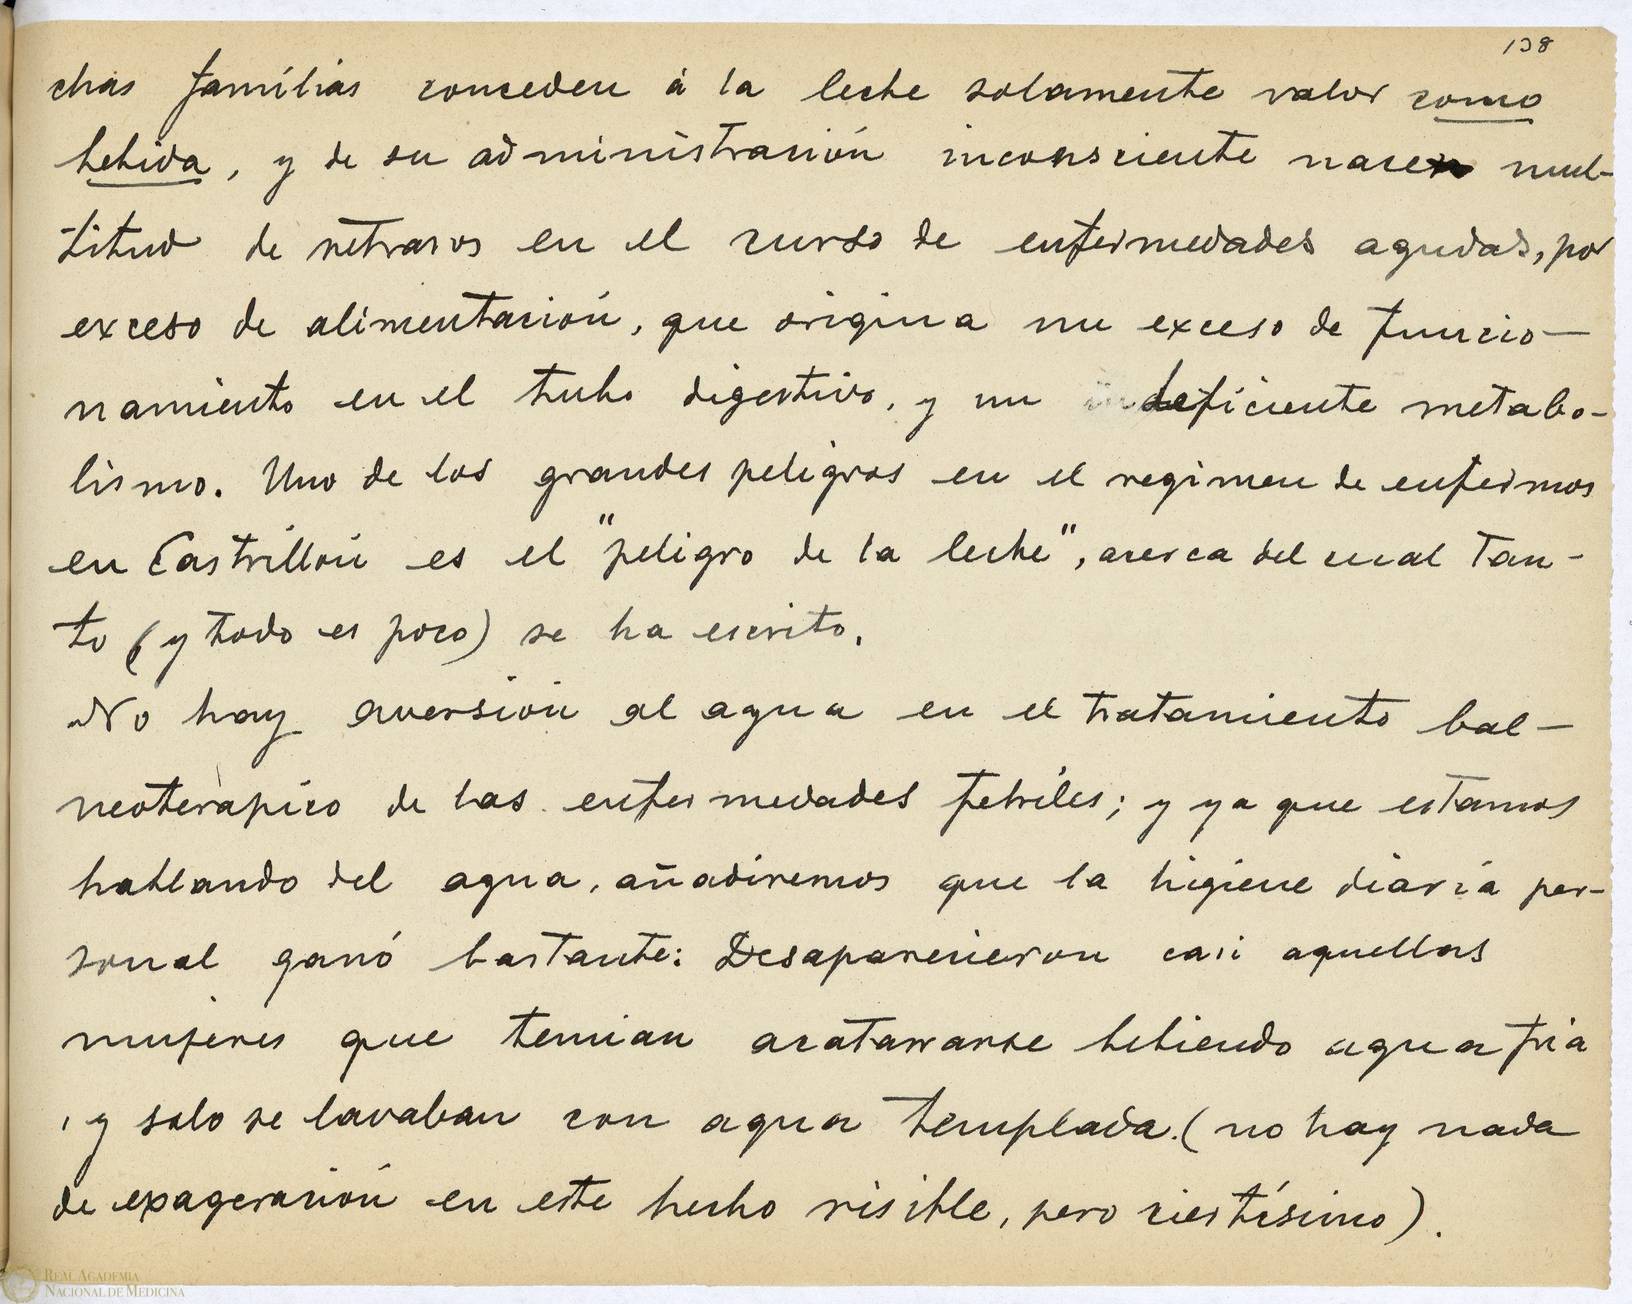 138
chas famílias conceden á la leche solamente valor como
bebida, y de su administración inconsciente nace mul-
titud de retrasos en el curso de enfermedades agudas, por
exceso de alimentación, que origina un exceso de funcio-
namiento en el tubo digestivo, y un deficiente metabo-
lismo. Uno de los grandes peligros en el regimen de enfermos
en Castrillón es el "peligro de la leche", acerca del cual tan-
to (y todo es poco) se ha escrito.
No hay aversión al agua en el tratamiento bal-
neoterápico de las enfermedades febriles; y ya que estamos
hablando del agua, añadiremos que la higiene diaria per-
sonal ganó bastante: Desaparecieron casi aquellas
mujeres que temian acatarrarse bebiendo agua fria
, y solo se lavaban con agua templada. (no hay nada
de exageración en este hecho risible, pero ciertísimo).
REAL ACADEMIA
NACIONAL DE MEDICINA